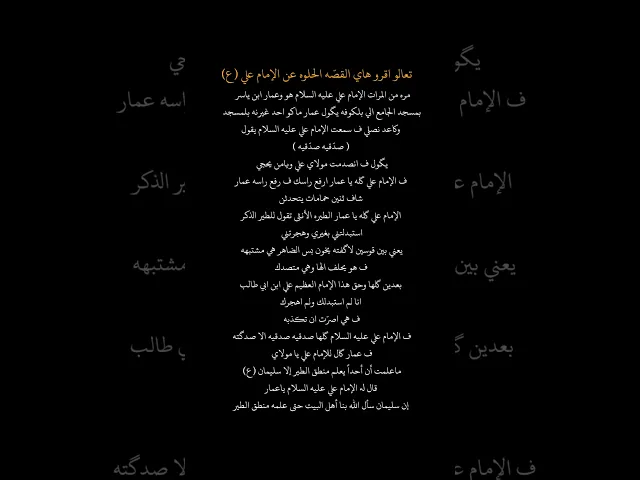 تعالو اقرو هاي القصّه الحلوه عن الإمام علي (ع)
مره من المرات الإمام علي عليه السلام هو وعمار ابن ياسر
بمسجد الجامع الي بلكوفه يكول عمار ماكو احد غيرنه بلمسجد
وكاعد نصلي ف سمعت الإمام علي عليه السلام يقول
( صدّقيه صدّقيه )
يكول ف انصدمت مولاي علي ويامن يحچي
ف الإمام علي كله يا عمار ارفع راسك ف رفع راسه عمار
شاف ثنين حمامات يتحدثن
الإمام علي كله يا عمار الطيره الأنثى تقول للطير الذكر
استبدلتني بغيري وهجرتني
يعني بين قوسين لاكفته يخون بس الضاهر هي مشتبهه
ف هو يحلف الها وهي متصدك
بعدين كلها وحق هذا الإمام العظيم علي ابن ابي طالب
انا لم استبدلك ولم اهجرك
ف هي اصرّت ان تكذبه
ف الإمام علي عليه السلام كلها صدقيه صدقيه الا صدكته
ف عمار كال للإمام علي يا مولاي
ماعلمت أن أحداً يعلم منطق الطير إلا سليمان (ع)
قال له الإمام علي عليه السلام ياعمار
إن سليمان سأل الله بنا أهل البيت حتى علمه منطق الطير